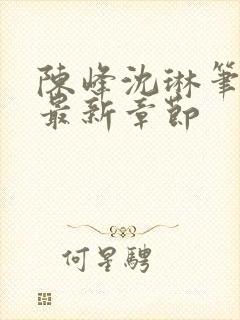 陳峰沈琳筆
最新章節
何星騁